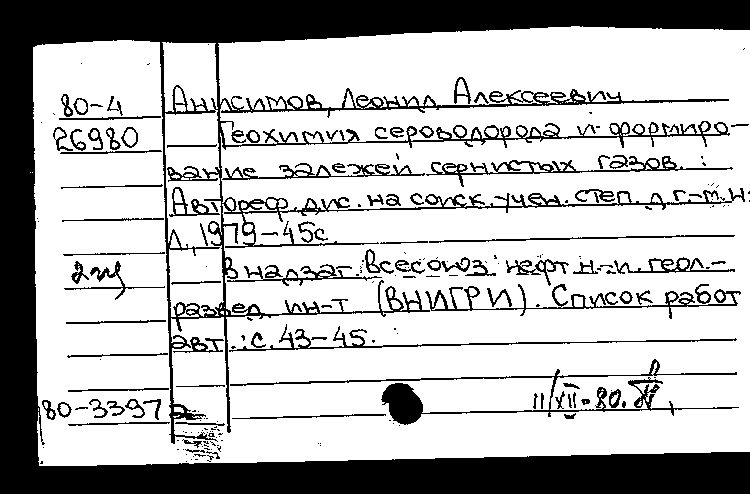 80-4 Анисимов, Леонид Алексеевич
26980 Геохимия сероводорода и формиро-
вание залежей сернистых газов. :
Автореф. дис. на соиск. учен. степ. д. г.-м. н.
Л., 1979-45с.
В надзаг. Всесоюз. нефт. н.-и. геол.-
развед. ин-т (ВНИГРИ). Список работ
авт.: с. 43-45.
80-3397
11/XII-80.